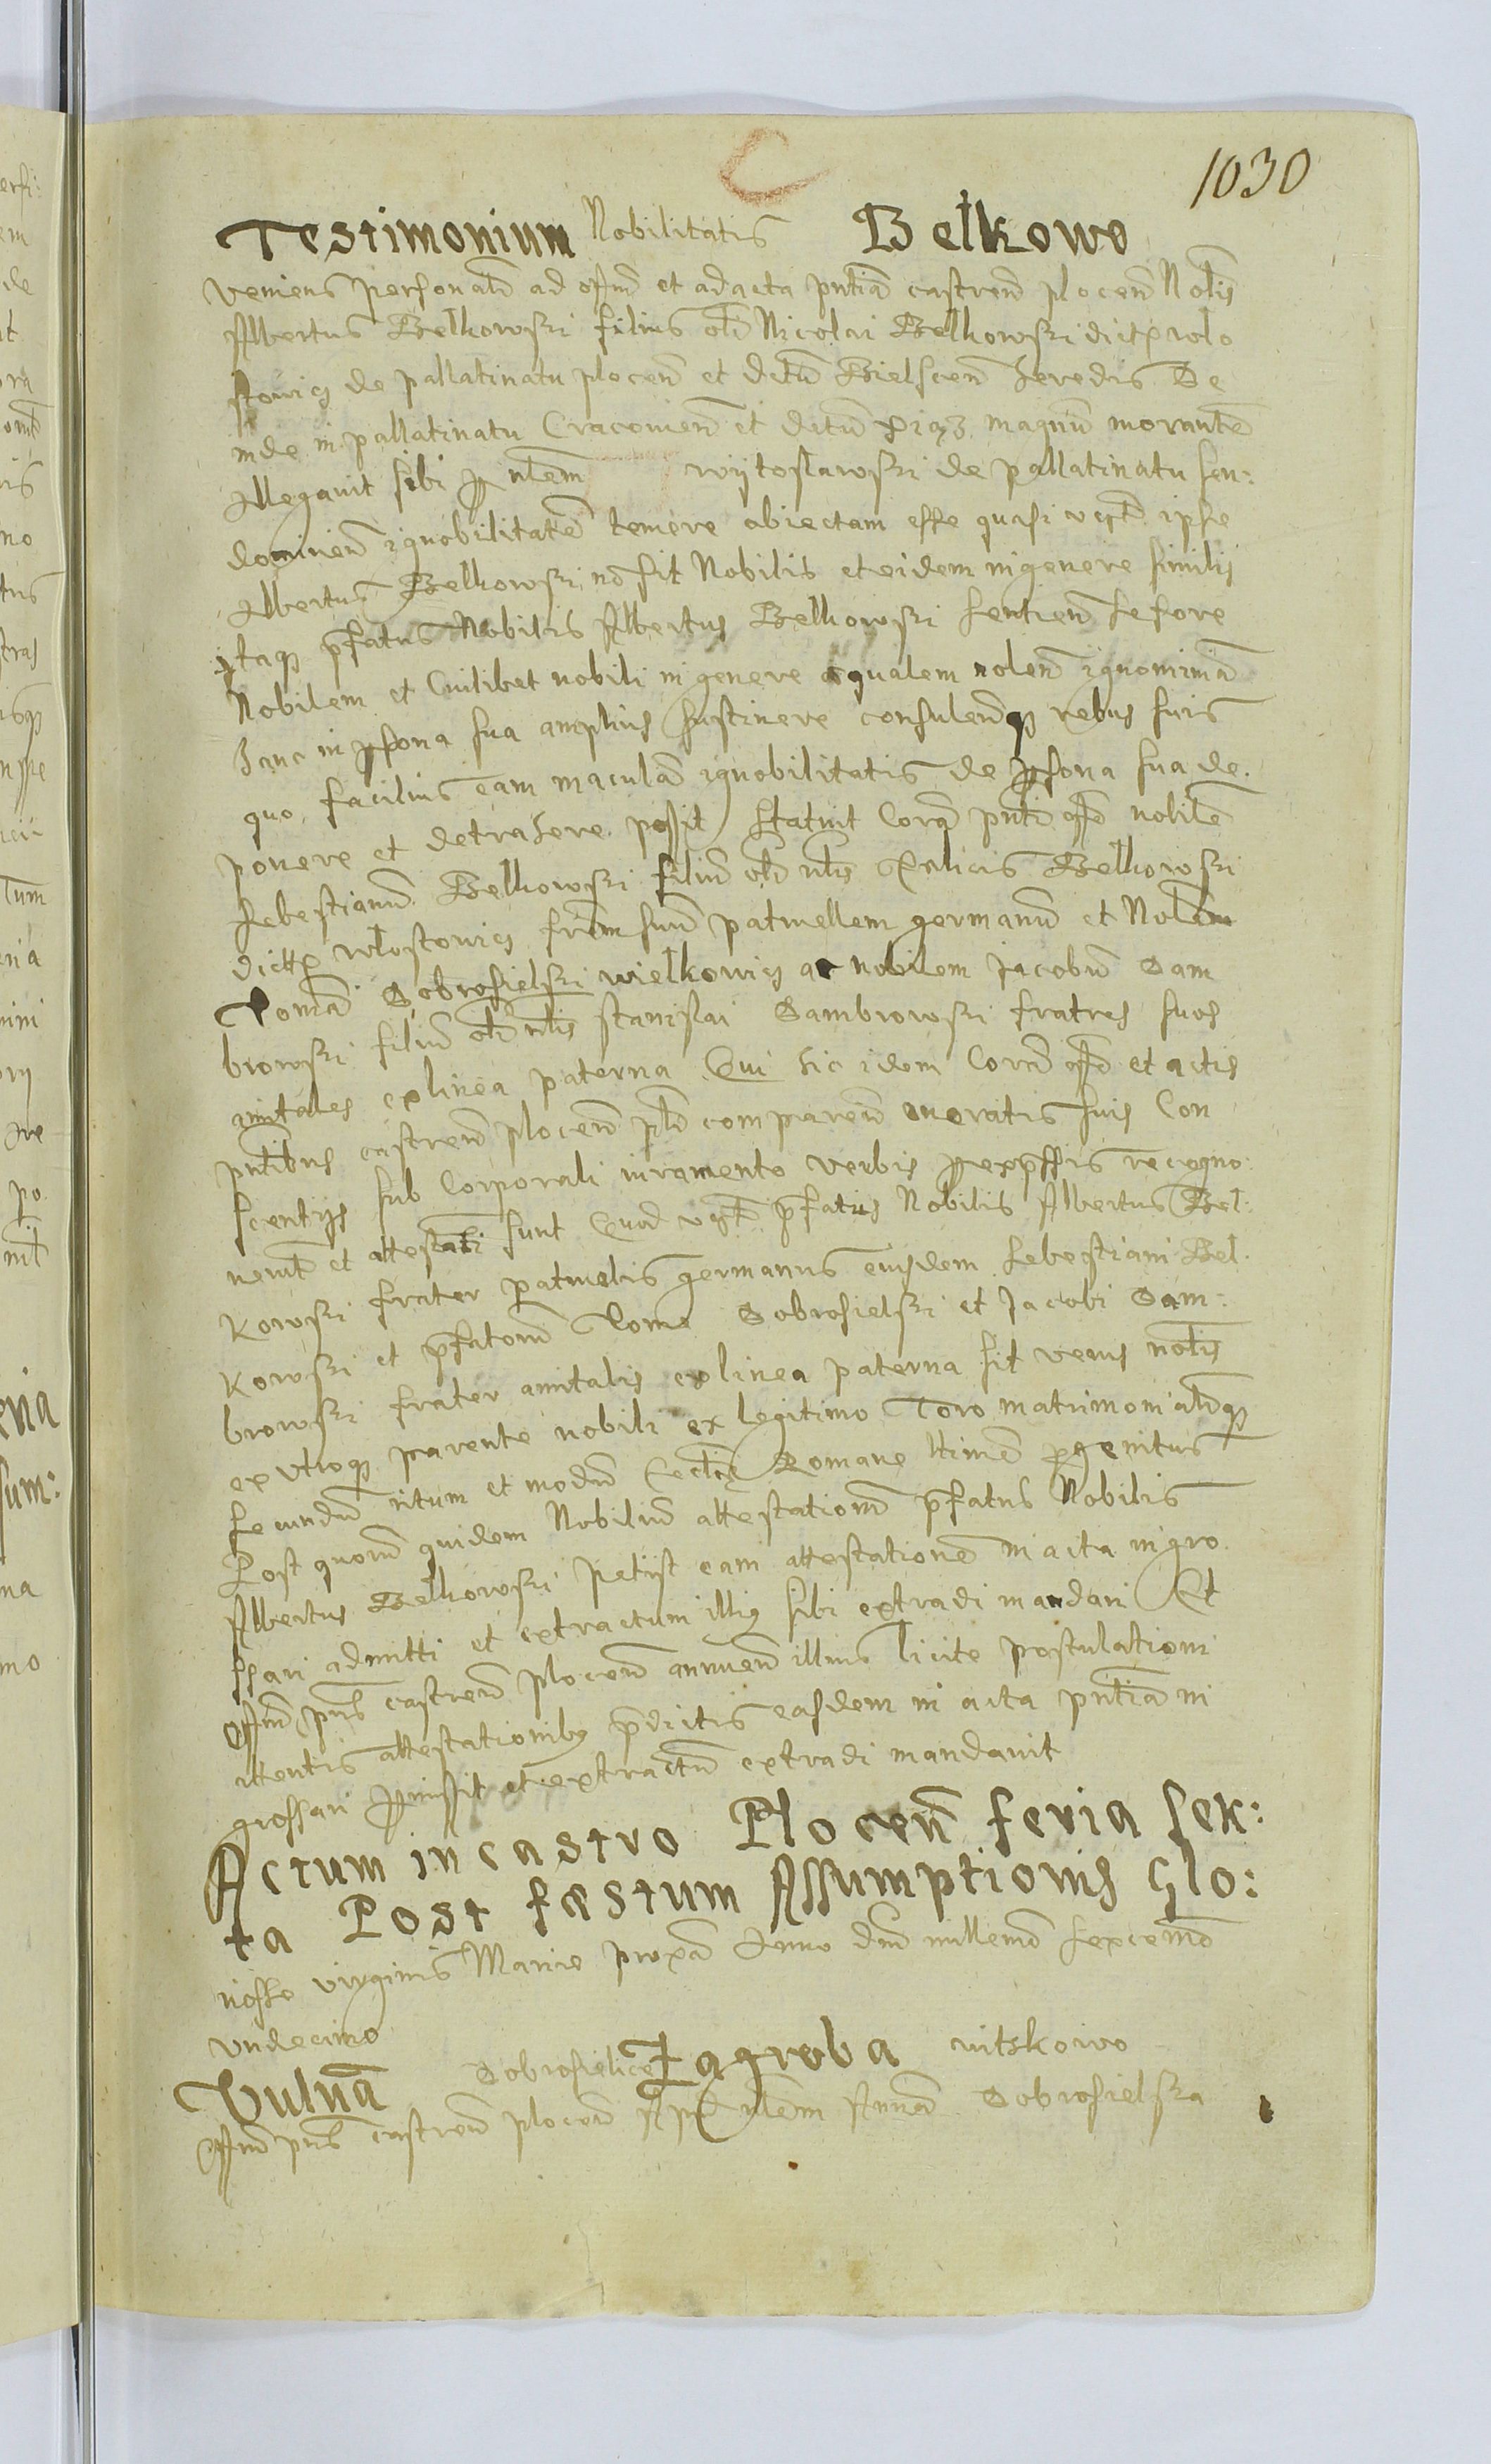 1030
Testimonium Nobilitatis Bełkowo
Veniens personalr ad offm et ad acta pntia castren plocen Noblis
Albertus Belkowski filius olim Nicolai Belkowski dictr wlo
stowicz de pallatinatu plocen et distu Bielscen heredis De
inde in pallatinatu Cracovien et distu magnu morante
Allegavit sibi per nblem wijtosławski de pallatinatu sen:
domirien ignobilitatē temere obiectam esse quasi vero ipse
Albertus Belkowski nō sit Nobilis et eidem in genere similis
itaqz pfatus Nobilis Albertus Belkowski sentien se fore
Nobilem et Cuilibet nobili in genere equalem nolen ignominiā
hanc in psona sua amplius sustinere consulendqz rebus suis
quo facilius eam maculā ignobilitatis de psona sua de.
ponere et detrahere possit statuit Corā pnti offo nobilē
Sebestianū Belkowski filiū olim nblis Felicis Belkowski
dictr włostowicz frem suū patruellem germanū et Noblem
Tomā Dobrosielski wielkowicz ac nobilem Jacobū Dam
browski filiū olim nblis stanislai Dambrowski fratres suos
amitales ex linea paterna Qui hic idem Corā offo et actis
pntibus castren plocen plr comparen oneratis suis Con
scentijs sub Corporali iuramento verbis expssis recogno
verūt et attestati sunt Quod vero pfatus Nobilis Albertus Bel:
kowski frater patruelis germanus eiusdem Sebestiani Bel.
kowski et pfatorū Tome Dobrosielski et Jacobi Dam:
browski frater amitalis ex linea paterna sit verus noblis
ex vtroqz parente nobili ex legitimo Toro matrimonialiqz
secundū ritum et modū Romane progenitus
Post quorū quidem Nobiliū attestationē pfatus Nobilis
Albertus Belkowski petijt eam attestationē in acta ingro
ssari admitti et extractum illius sibi extradi mandari Et
offm pns castren plocen annuen illius licite postulationi
attentis attestationibus pdictis easdem in acta pntia in
grossari pmissit et extractū extradi mandavit
Actum in castro Plocen feria sex:
ta Post festum Assumptionis Glo:
riosse virginis Marie proxa Anno dni millemo sexcemo
vndecimo
Dobrosielice Zagroba witskowo
Vulnā
Offm pns castren plocen Apud nblem Annā Dobrosielska